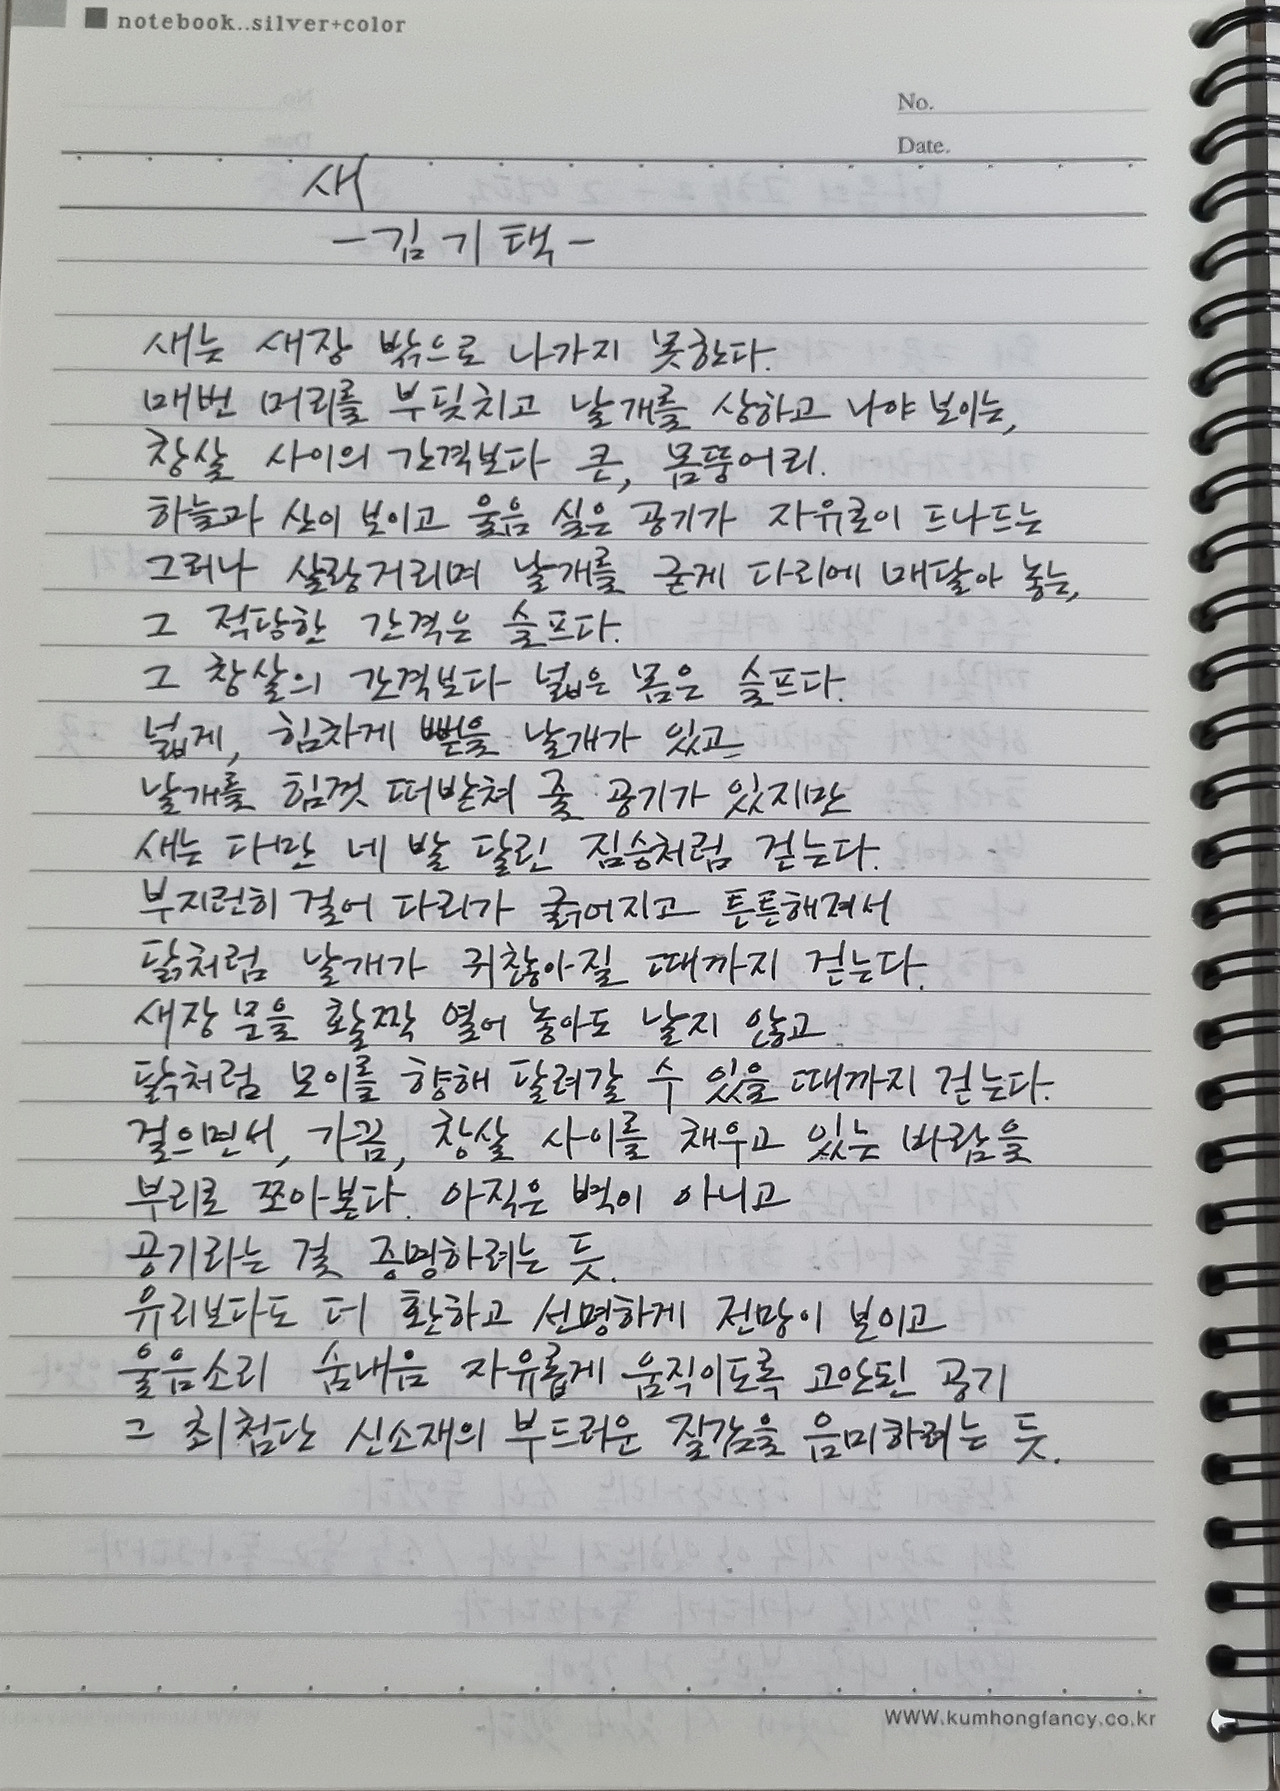 notebook..silver+color
No.
Date.
새
-김기택-
새는 새장 밖으로 나가지 못한다.
매번 머리를 부딪치고 날개를 상하고 나야 보이는,
창살 사이의 간격보다 큰, 몸뚱어리.
하늘과 산이 보이고 울음 실은 공기가 자유로이 드나드는
그러나 살랑거리며 날개를 굳게 다리에 매달아 놓는,
그 적당한 간격은 슬프다.
그 창살의 간격보다 넓은 몸은 슬프다.
넓게, 힘차게 뻗을 날개가 있고
날개를 힘껏 떠받쳐 줄 공기가 있지만
새는 다만 네 발 달린 짐승처럼 걷는다.
부지런히 걸어 다리가 굵어지고 튼튼해져서
닭처럼 날개가 귀찮아질 때까지 걷는다.
새장 문을 활짝 열어 놓아도 날지 않고
닭처럼 모이를 향해 달려갈 수 있을 때까지 걷는다.
걸으면서, 가끔, 창살 사이를 채우고 있는 바람을
부리로 쪼아본다. 아직은 벽이 아니고
공기라는 걸 증명하려는 듯.
유리보다도 더 환하고 선명하게 전망이 보이고
울음소리 숨내음 자유롭게 움직이도록 고안된 공기
그 최첨단 신소재의 부드러운 질감을 음미하려는 듯.
www.kumhongfancy.co.kr